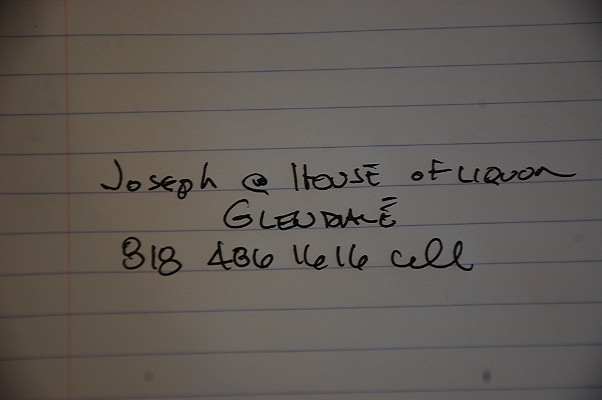 Joseph @ HOUSE of LIQUOR
GLENDALE
818 486 1616 cell